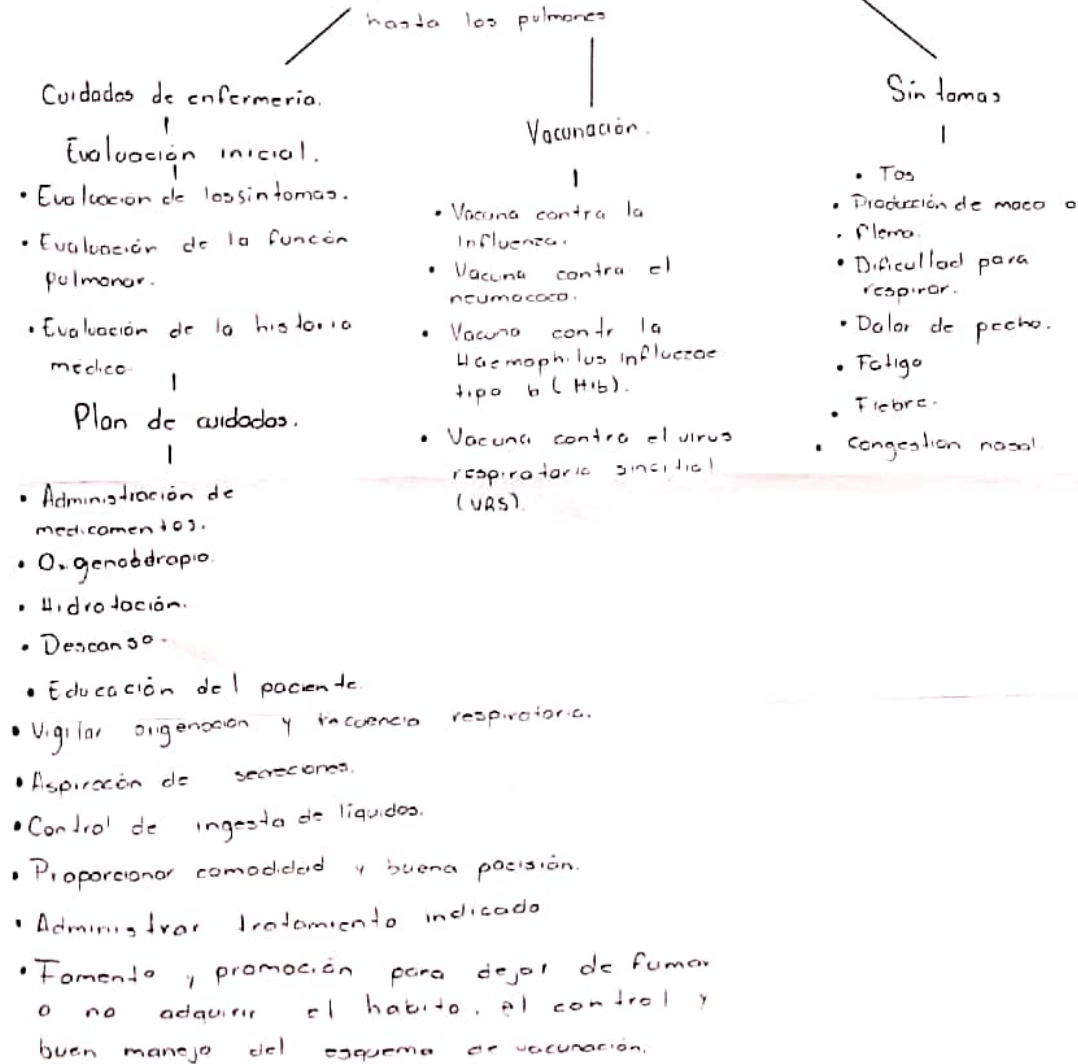 hasta los pulmones
Cuidados de enfermeria.
Evaluación inicial.
• Evaluación de lossintomas.
• Evaluación de la funcón
pulmonar.
• Evaluación de la historia
médica
Plan de cuidados.
• Administración de
medicamentos.
• Hidratación.
• Descanso.
• Educación del paciente.
• Vigilar y respiratoria.
• Aspiracón de secreciones.
• Control de ingesta de líquidos.
• Proporcionar comodidad y buena pocisión.
• Administrar tratamiento indicado
• Fomento y promoción para dejar de fumar
o no adquirir el habito, el control y
buen manejo del esquema de vacunación.
Vacunación.
• Vacuna contra la
Influenza.
• Vacuna contra el
neumococo.
• Vacuna contr la
Haemophilus Influezae
tipo b (Hib).
• Vacuna contra el virus
respiratorio sincitial
(VRS).
Sintomas
• Tos
• Producción de moco o
• flema.
• Dificultad para
respirar.
• Dolor de pecho.
• Fatiga
• Fiebre.
• Congestion nasal.